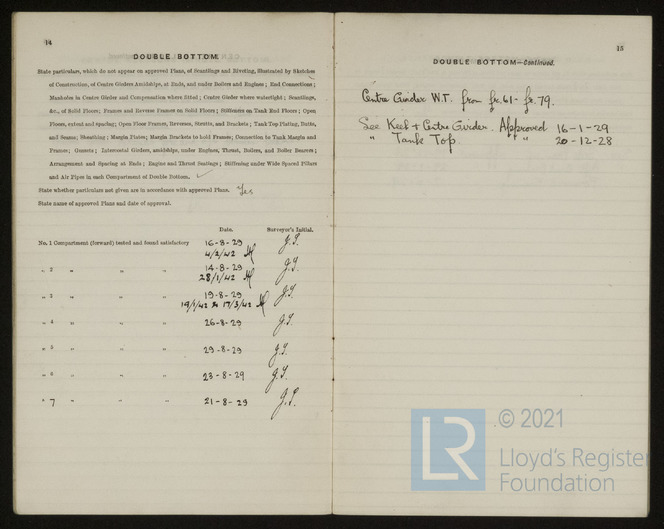 14
DOUBLE BOTTOM
State particulars, which do not appear on approved Plans, of Scantlings and Riveting, illustrated by Sketches
of Construction, of Centre Girders Amidships, at Ends, and under Boilers and Engines; End Connections;
Manholes in Centre Girder and Compensation where fitted; Centre Girder where watertight; Scantlings,
&c., of Solid Floors; Frames and Reverse Frames on Solid Floors; Stiffeners on Tank End Floors; Open
Floors, extent and spacing; Open Floor Frames, Reverses, Struts, and Brackets; Tank Top Plating, Butts,
and Seams; Sheathing; Margin Plates; Margin Brackets to hold Frames; Connection to Tank Margin and
Frames; Gussets; Intercostal Girders, amidships, under Engines, Thrust, Boilers, and Boiler Bearers;
Arrangement and Spacing at Ends; Engine and Thrust Seatings; Stiffening under Wide Spaced Pillars
and Air Pipes in each Compartment of Double Bottom. ✓
State whether particulars not given are in accordance with approved Plans. Yes
State name of approved Plans and date of approval.
Date. Surveyor's Initial.
No. 1 Compartment (forward) tested and found satisfactory 16-8-29 J.S.
4/2/42
„ 2 „ „ „ 14-8-29 J.S.
28/1/42
„ 3 „ „ „ 19-8-29 J.S.
19/1/42 & 17/3/42
„ 4 „ „ „ 26-8-29 J.S.
„ 5 „ „ „ 29-8-29 J.S.
„ 6 „ „ „ 23-8-29 J.S.
„ 7 „ „ „ 21-8-29 J.S.
15
DOUBLE BOTTOM—Continued.
Centre Girder W.T. from fr. 61 - fr. 79.
See Keel & Centre Girder. Approved 16-1-29
„ Tank Top. „ 20-12-28
LR
© 2021
Lloyd's Register
Foundation